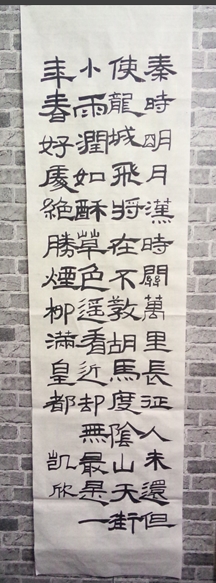 秦時明月漢時關萬里長征人未還但
使龍城飛將在不教胡馬度陰山天街
小雨潤如酥草色遥看近却無最是一
年春好處絶勝煙柳滿皇都 凱欣